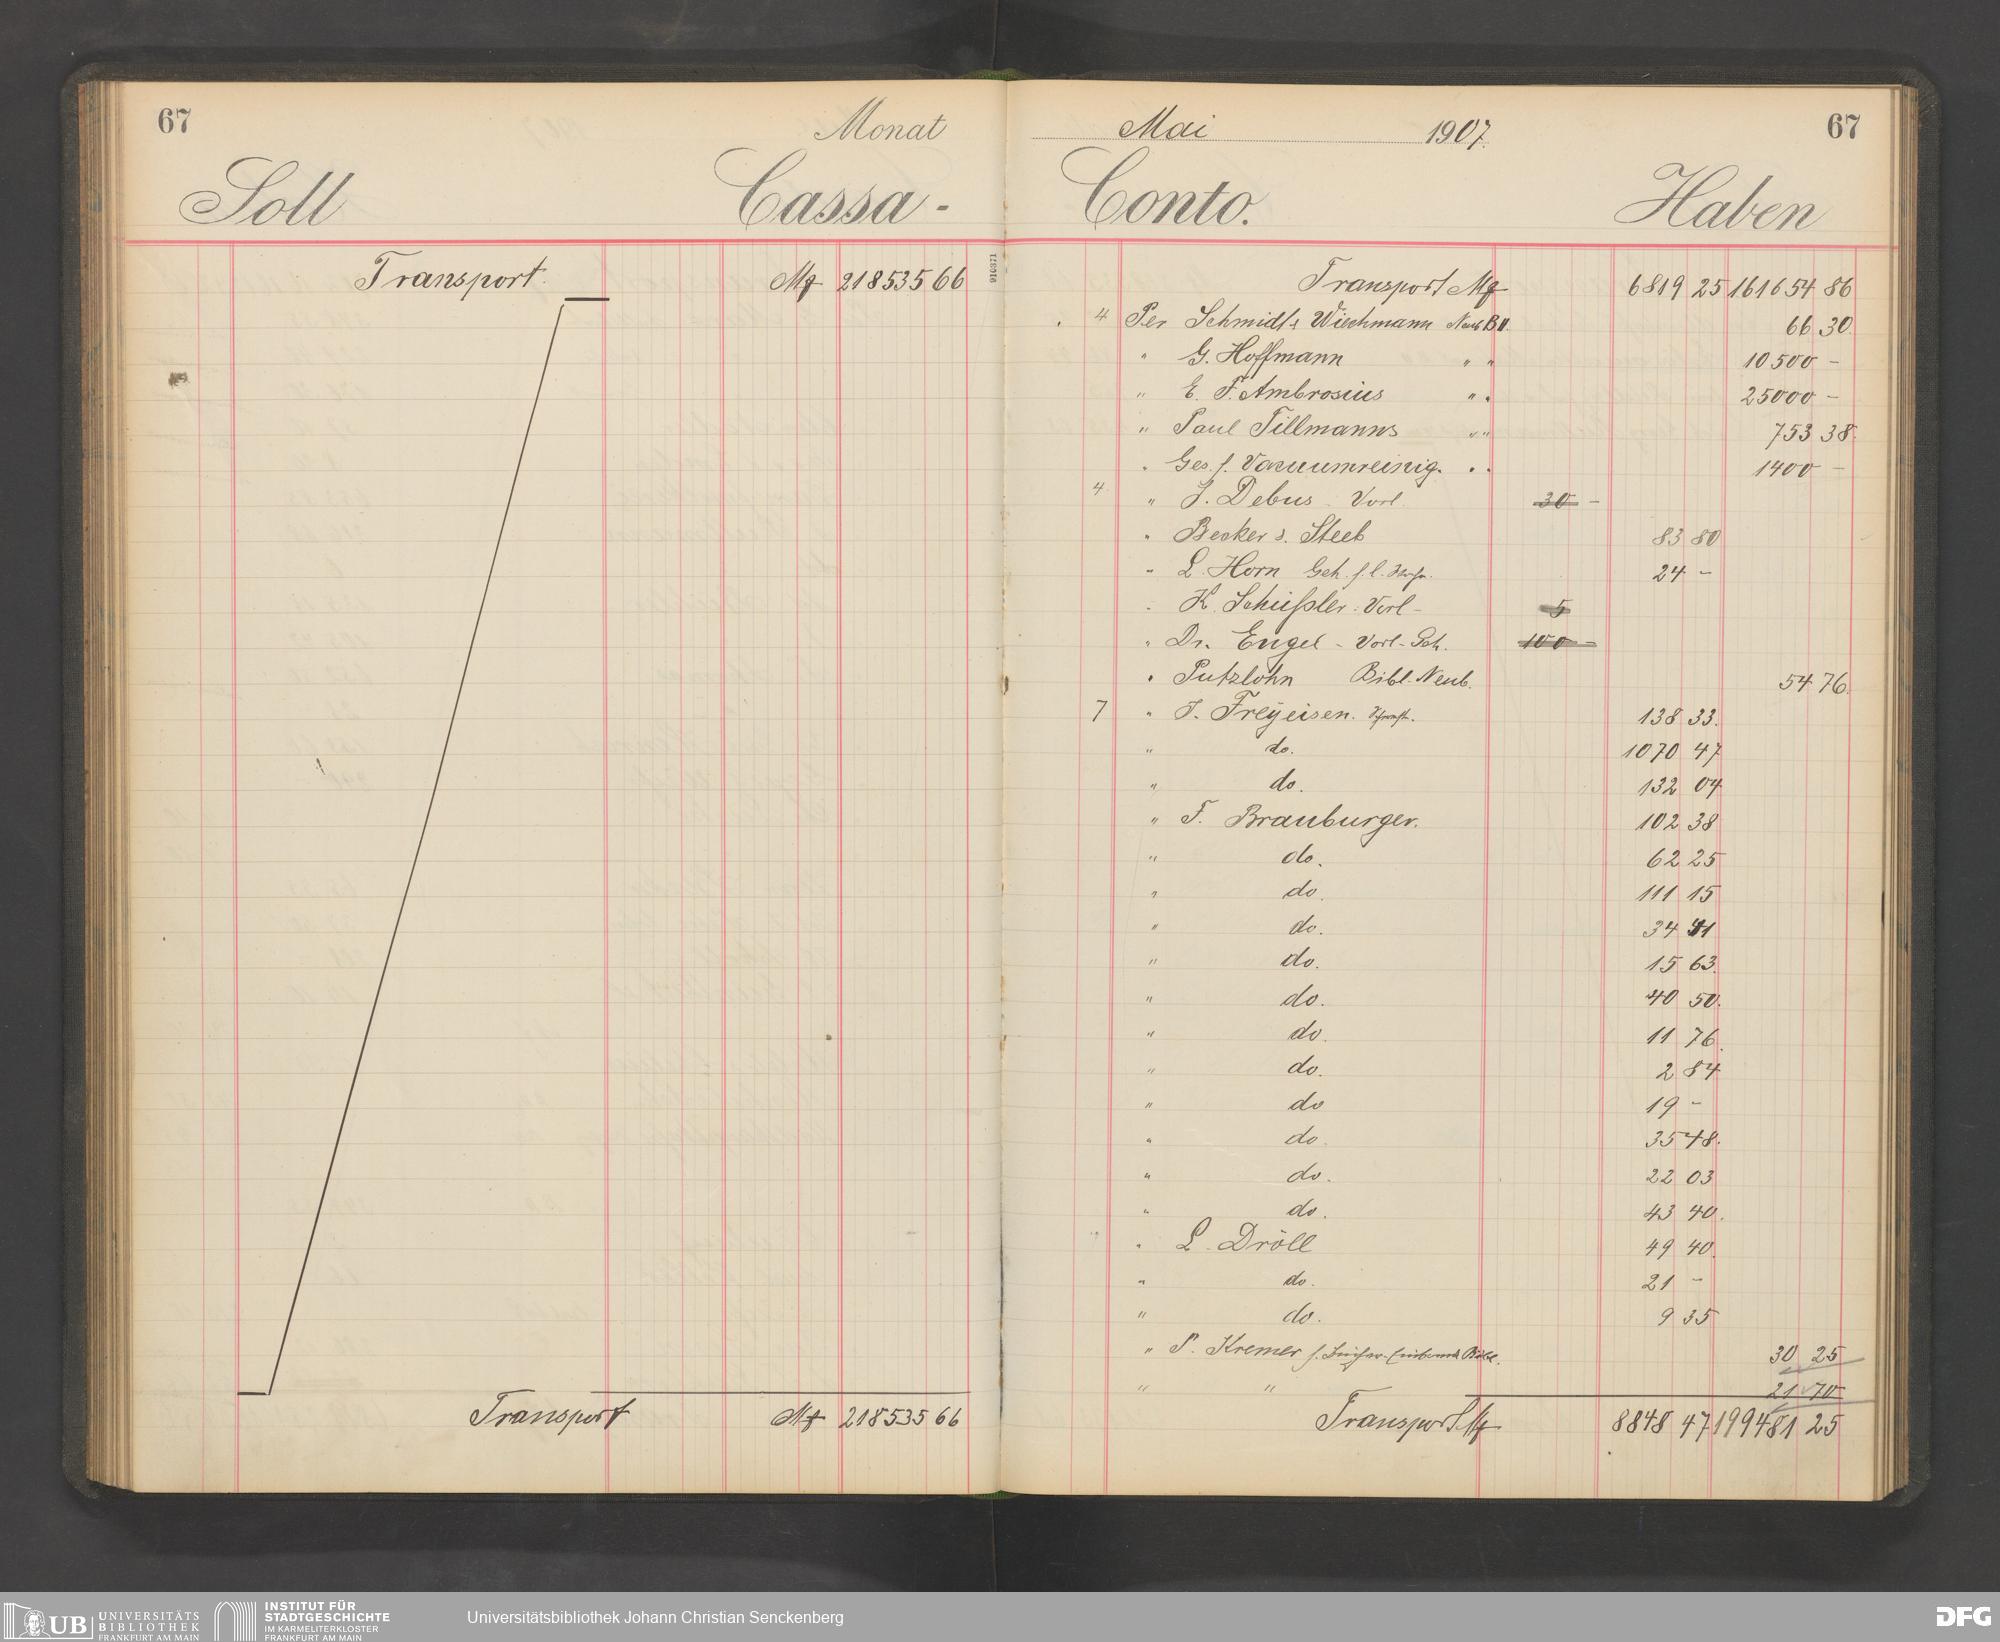 67
Monat
Soll
Cassa-
Transport. Mk 218535 66
Transport Mk 218535 66
Mai 1907. 67
Conto. Haben
916371
Transport Mk 6819 25 161654 86
4 Per Schmidt & Wiechmann Neub B II. 66 30.
" G. Hoffmann " " 10500 -
" E. F. Ambrosius " " 25000 -
" Paul Tillmanns " " 753 38.
" Ges. f. Vacuumreinig. " " 1400 -
4 " J. Debus Vorl. 30 -
" Becker s. Steeb 83 80
" L. Horn Geh. f. l. 24 -
" K. Schüßler. Vorl- 5
" Dr. Engel - Vorl- Geh. 100 -
" Putzlohn Bibl. Neub. 54 76.
7 " J. Freyeisen. 138 33.
" do. 1070 47
" do. 132 04
" F. Brauburger. 102 38
" do. 62 25
" do. 111 15
" do. 34 41
" do. 15 63.
" do. 40 50.
" do. 11 76.
" do. 2 84
" do 19 -
" do. 35 48.
" do. 22 03
" do. 43 40.
" L. Dröll 49 40.
" do. 21 -
" do. 9 35
" P. Kremer f. Bibl. 30 25
" " 21 70
Transport Mk 8848 47 199481 25
UB UNIVERSITÄTS
BIBLIOTHEK
FRANKFURT AM MAIN
INSTITUT FÜR
STADTGESCHICHTE
IM KARMELITERKLOSTER
FRANKFURT AM MAIN
Universitätsbibliothek Johann Christian Senckenberg
DFG